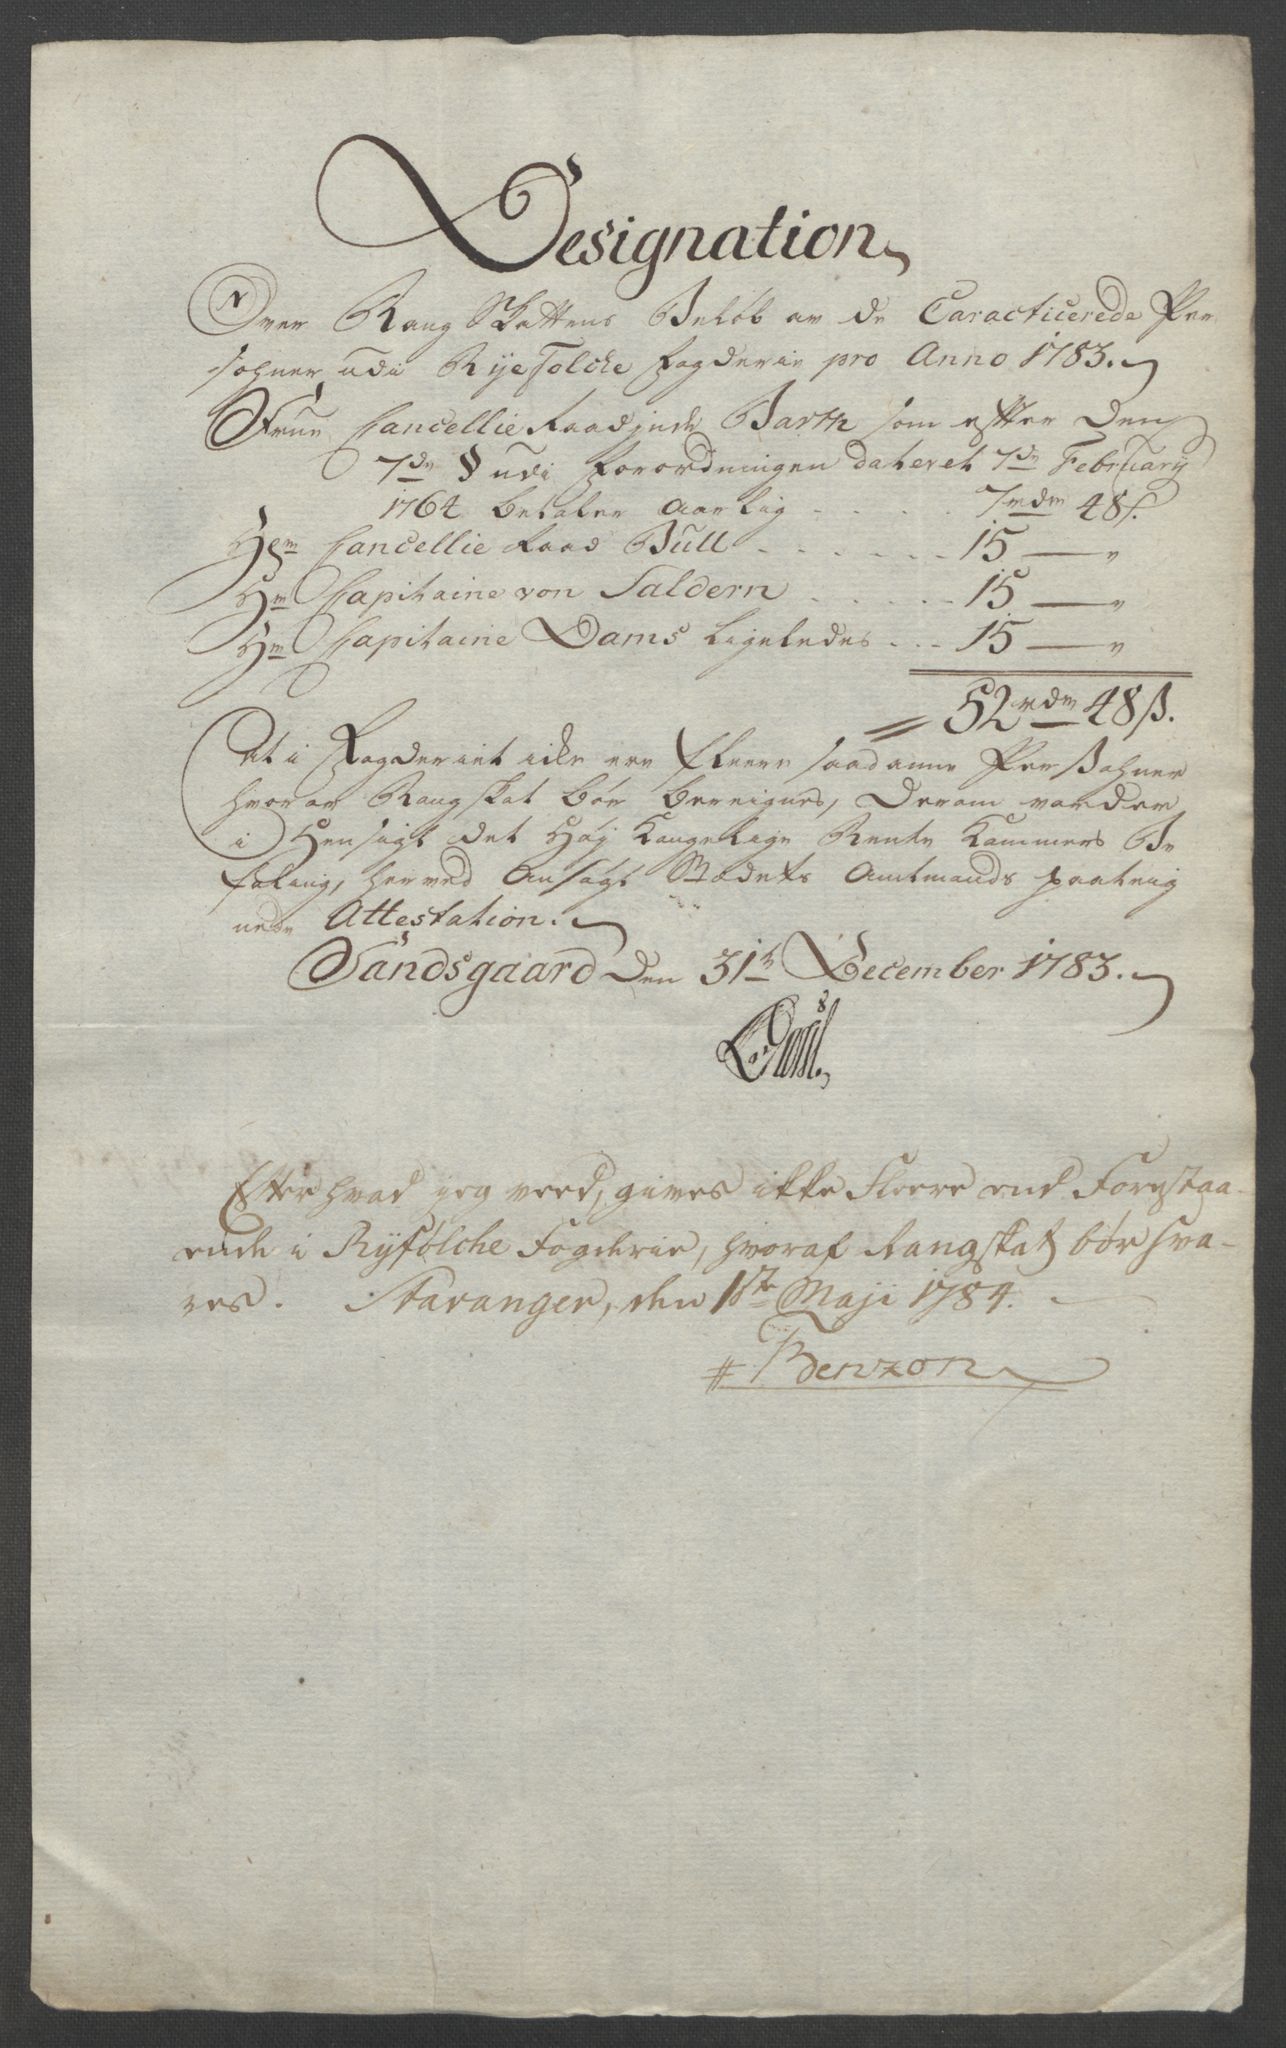 Designation
Over Rang Skattens Beløb av de Caracticerede Per
sohner udi Ryefolcke Fogderie pro Anno 1783.
Frue Cancellie Raadinde Barth som efter den
7de § udi Forordningen dateret 7de February
1764 betaler aarlig - - - - 7rdr 48ß.
Hr Cancellie Raad Bull - - - - - - 15 — "
Hr Capitaine von Saldern - - - - - 15 — "
Hr Capitaine Dams ligeledes - - - 15 — "
52rdr 48ß.
At i Fogderiet icke ere fleere saadanne Persohner
hvorav Rangskat bør bereignes, derom vorder
i Hensigt det Høy Kongelige Rente Kammers Be
faling, herved Ansøgt Stædets Amtmands paateig
nede Attestation.
Sandsgaard den 31te December 1783.
Efter hvad jeg veed, gives ikke Fleere end Forestaa-
ende i Ryfølche Fogderie, hvoraf Rangskat bør sva-
res. Stavanger, den 1ste Maji 1784.
Benzon